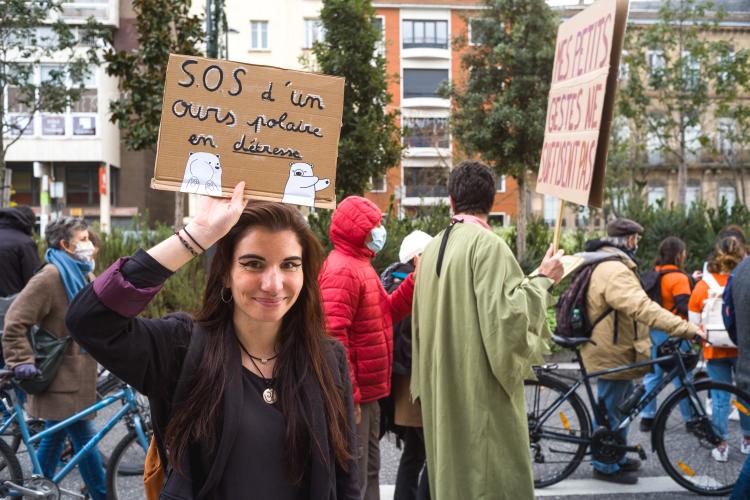 S.O.S d'un
ours polaire
en détresse
MES PETITS
GESTES NE
SUFFISENT PAS